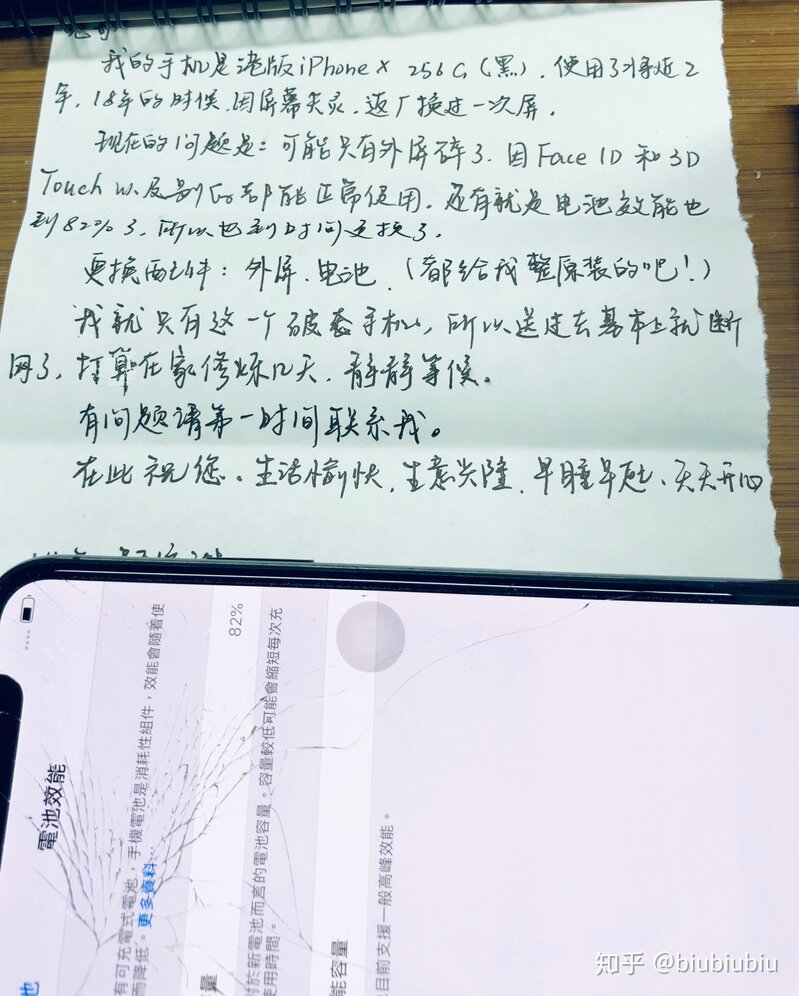 我的手机是港版iPhone X 256G(黑),使用了将近2
年,18年的时候,因屏幕失灵,返厂换过一次屏.
现在的问题是:可能只有外屏碎了.因Face ID 和3D
Touch 以及别的都能正常使用.还有就是电池效能也
到82%了,所以也到时间更换了.
更换两件:外屏、电池.(都给我整原装的吧!)
我就只有这一个破手机,所以送过去基本上就断
网了,打算在家修炼几天,静静等候。
有问题请第一时间联系我。
在此祝您。生活愉快,生意兴隆,早睡早起、天天开心
電池效能
有可充電式電池,手機電池是消耗性組件,效能會隨着使
而降低。更多資料⋯
量
82%
對於新電池而言的電池容量。容量較低可能會縮短每次充
使用時間。
能容量
目前支援一般高峰效能。
知乎 @biubiubiu